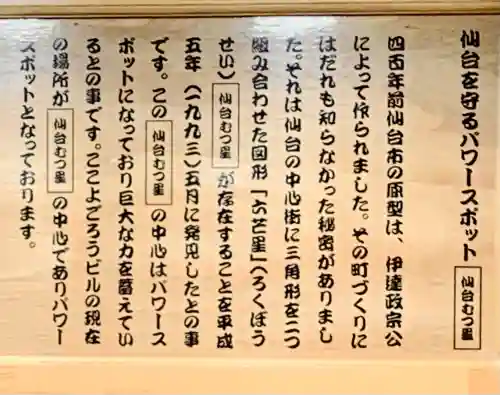 仙台を守るパワースポット 仙台むつ星
四百年前仙台市の原型は、伊達政宗公
によって作られました。その町づくりに
はだれも知らなかった秘密がありまし
た。それは仙台の中心街に三角形を二つ
組み合わせた図形「六芒星」(ろくぼう
せい) 仙台むつ星 が存在することを平成
五年(一九九三)五月に発見したとの事
です。この 仙台むつ星 の中心はパワース
ポットになっており巨大な力を蓄えてい
るとの事です。ここよごろうビルの現在
の場所が 仙台むつ星 の中心でありパワー
スポットとなっております。